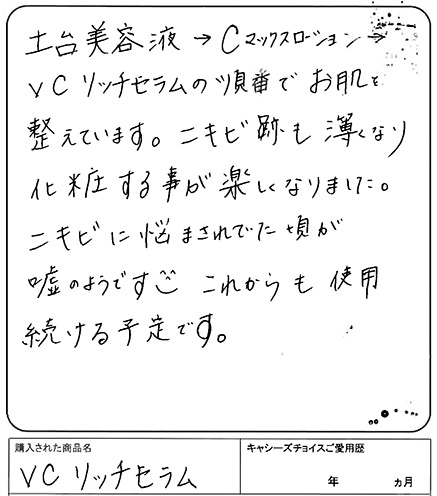 土台美容液→Cマックスローション→
VCリッチセラムの順番でお肌を
整えています。ニキビ跡も薄くなり
化粧する事が楽しくなりました。
ニキビに悩まされてた頃が
嘘のようです これからも使用
続ける予定です。
購入された商品名
VCリッチセラム
キャシーズチョイスご愛用歴
年 ヵ月